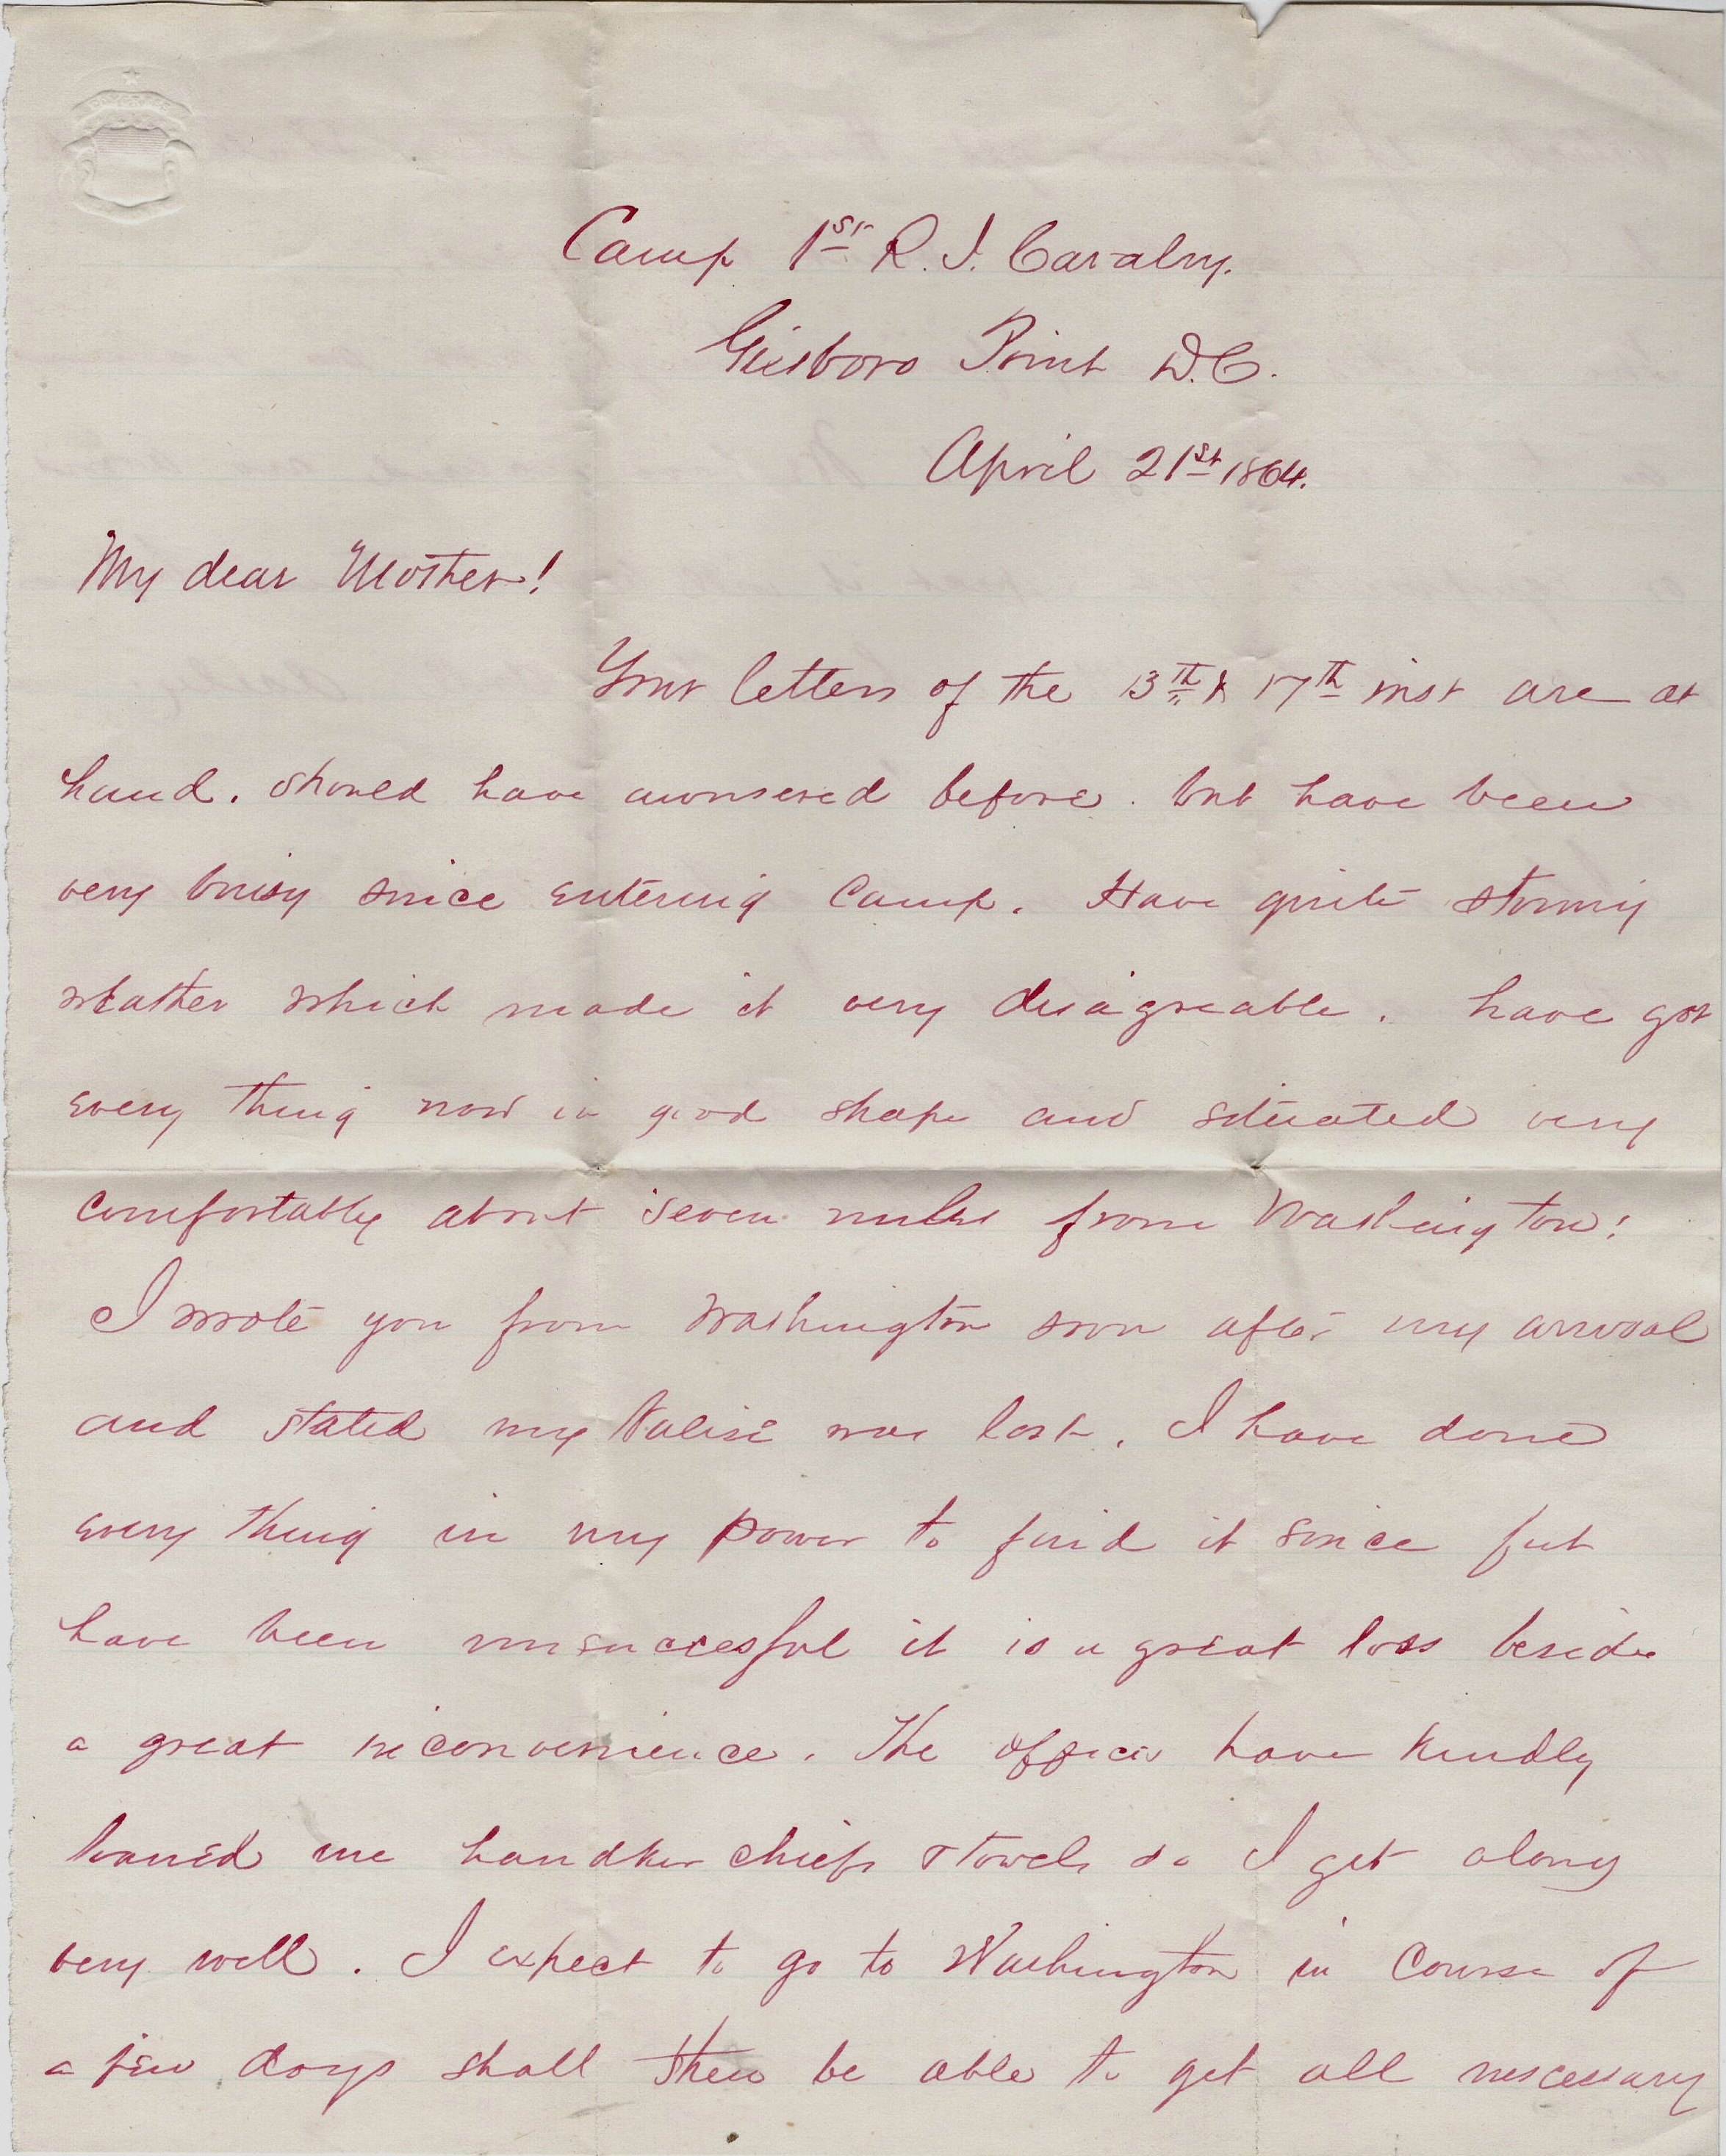 Camp 1st R. I. Cavalry.
Giesboro Point D.C.
April 21st 1864.
My dear Mother!
Your letters of the 13th & 17th inst are at
hand. should have awnsered before. but have been
very buisy since entering Camp. Have quite stormy
weather which made it very disagreable. have got
every thing now in good shape and situated very
comfortably about seven miles from Washington!
I wrote you from Washington soon after my arrival
and stated my Valise was lost. I have done
every thing in my power to find it since but
have been unsuccesful it is a great loss beside
a great inconvenience. The officers have kindly
loaned me handker chiefs & towels so I get along
very well. I expect to go to Washington in Course of
a few days shall then be able to get all nescessary